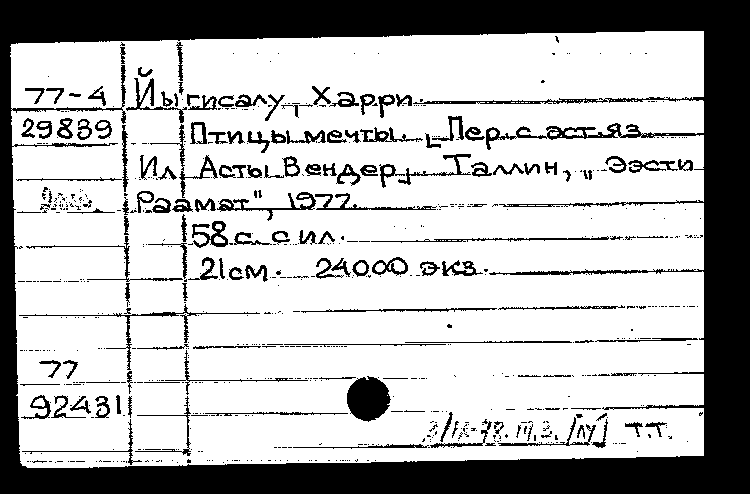 77-4 Йыгисалу, Харри.
29839 Птицы мечты. [Пер. с эст. яз.
Ил. Асты Вендер]. Таллин, „Ээсти
Раамат", 1977.
58 с. с ил.
21 см. 24000 экз.
77
92431
3/IX-78. Т.Т.